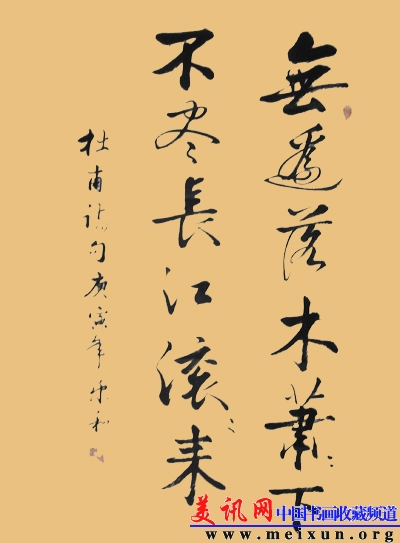 無邊落木蕭〻下
不尽長江滚〻来
杜甫诗句庚寅年和
美讯网 中国书画收藏频道
www.meixun.org